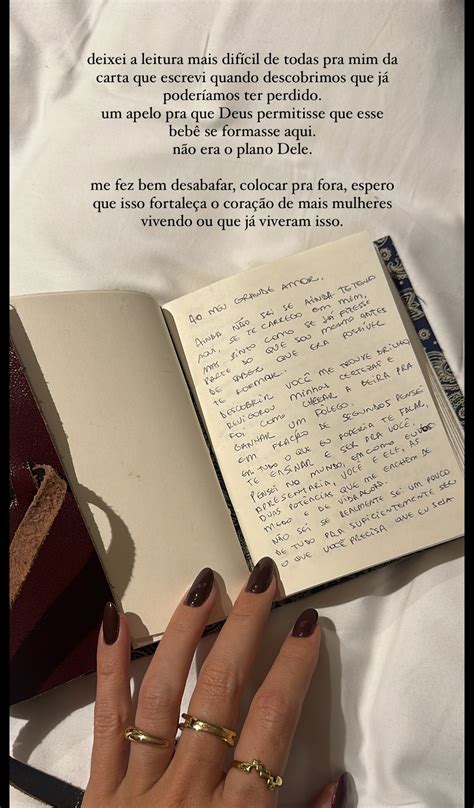 deixei a leitura mais difícil de todas pra mim da
carta que escrevi quando descobrimos que já
poderíamos ter perdido.
um apelo pra que Deus permitisse que esse
bebê se formasse aqui.
não era o plano Dele.
me fez bem desabafar, colocar pra fora, espero
que isso fortaleça o coração de mais mulheres
vivendo ou que já viveram isso.
AO MEU GRANDE AMOR,
AINDA NÃO SEI SE AINDA TE TENHO
AQUI, SE TE CARREGO EM MIM,
MAS SINTO COMO SE JÁ FIZESSE
PARTE DO QUE SOU MESMO ANTES
DE SABER QUE ERA POSSÍVEL
TE FORMAR.
DESCOBRIR VOCÊ ME TROUXE BRILHO E
MINHAS CERTEZAS E
FOI COMO CHEGAR A BEIRA PRA
GANHAR UM FÔLEGO.
EM FRAÇÃO DE SEGUNDOS PENSEI
EM TUDO O QUE EU PODERIA TE FALAR,
TE ENSINAR E SER PRA VOCÊ.
PENSEI NO MUNDO, EM COMO EU TE
APRESENTARIA, VOCÊ E ELE, AS
DUAS POTÊNCIAS QUE ME ENCHEM DE
MEDO E DE
NÃO SEI SE REALMENTE SEI UM POUCO
DE TUDO PRA SUFICIENTEMENTE SER
O QUE VOCÊ PRECISA QUE EU SEJA